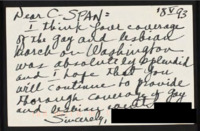 Dear C-SPAN:
I think your coverage
of the gay and lesbian
March on Washington
was absolutely splendid
and I hope that you
will continue to provide
thorough coverage of gay
and lesbian
Sincerely,